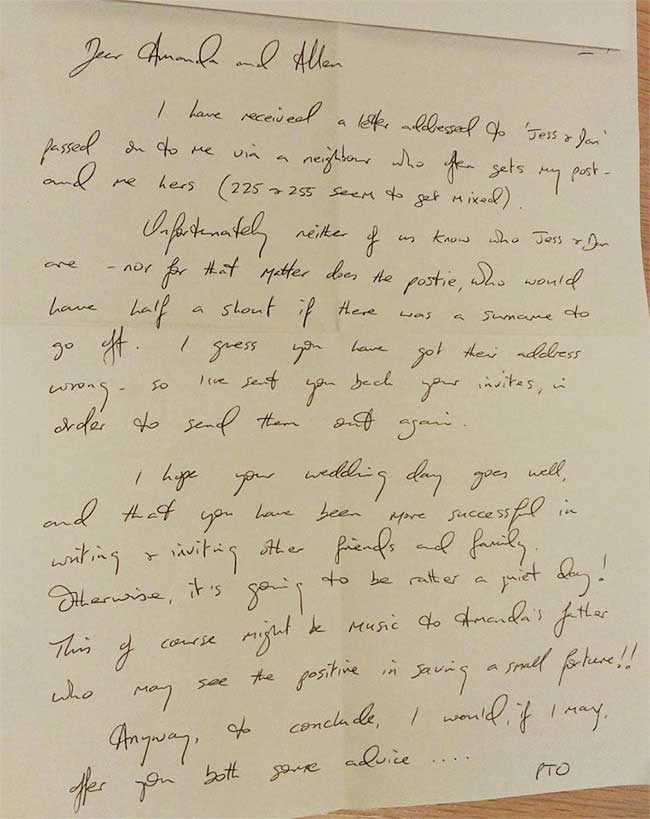 Dear Amanda and Allen
I have received a letter addressed to 'Jess & Dan'
passed on to me via a neighbour who often gets my post -
and me hers (225 & 255 seem to get mixed).
Unfortunately neither of us know who Jess & Dan
are - nor for that matter does the postie, who would
have half a shout if there was a surname to
go off. I guess you have got their address
wrong - so I've sent you back your invites, in
order to send them out again.
I hope your wedding day goes well,
and that you have been more successful in
writing & inviting other friends and family.
Otherwise, it's going to be rather a quiet day!
This of course might be music to Amanda's father
who may see the positive in saving a small fortune!!
Anyway, to conclude, I would, if I may,
offer you both some advice ....
PTO